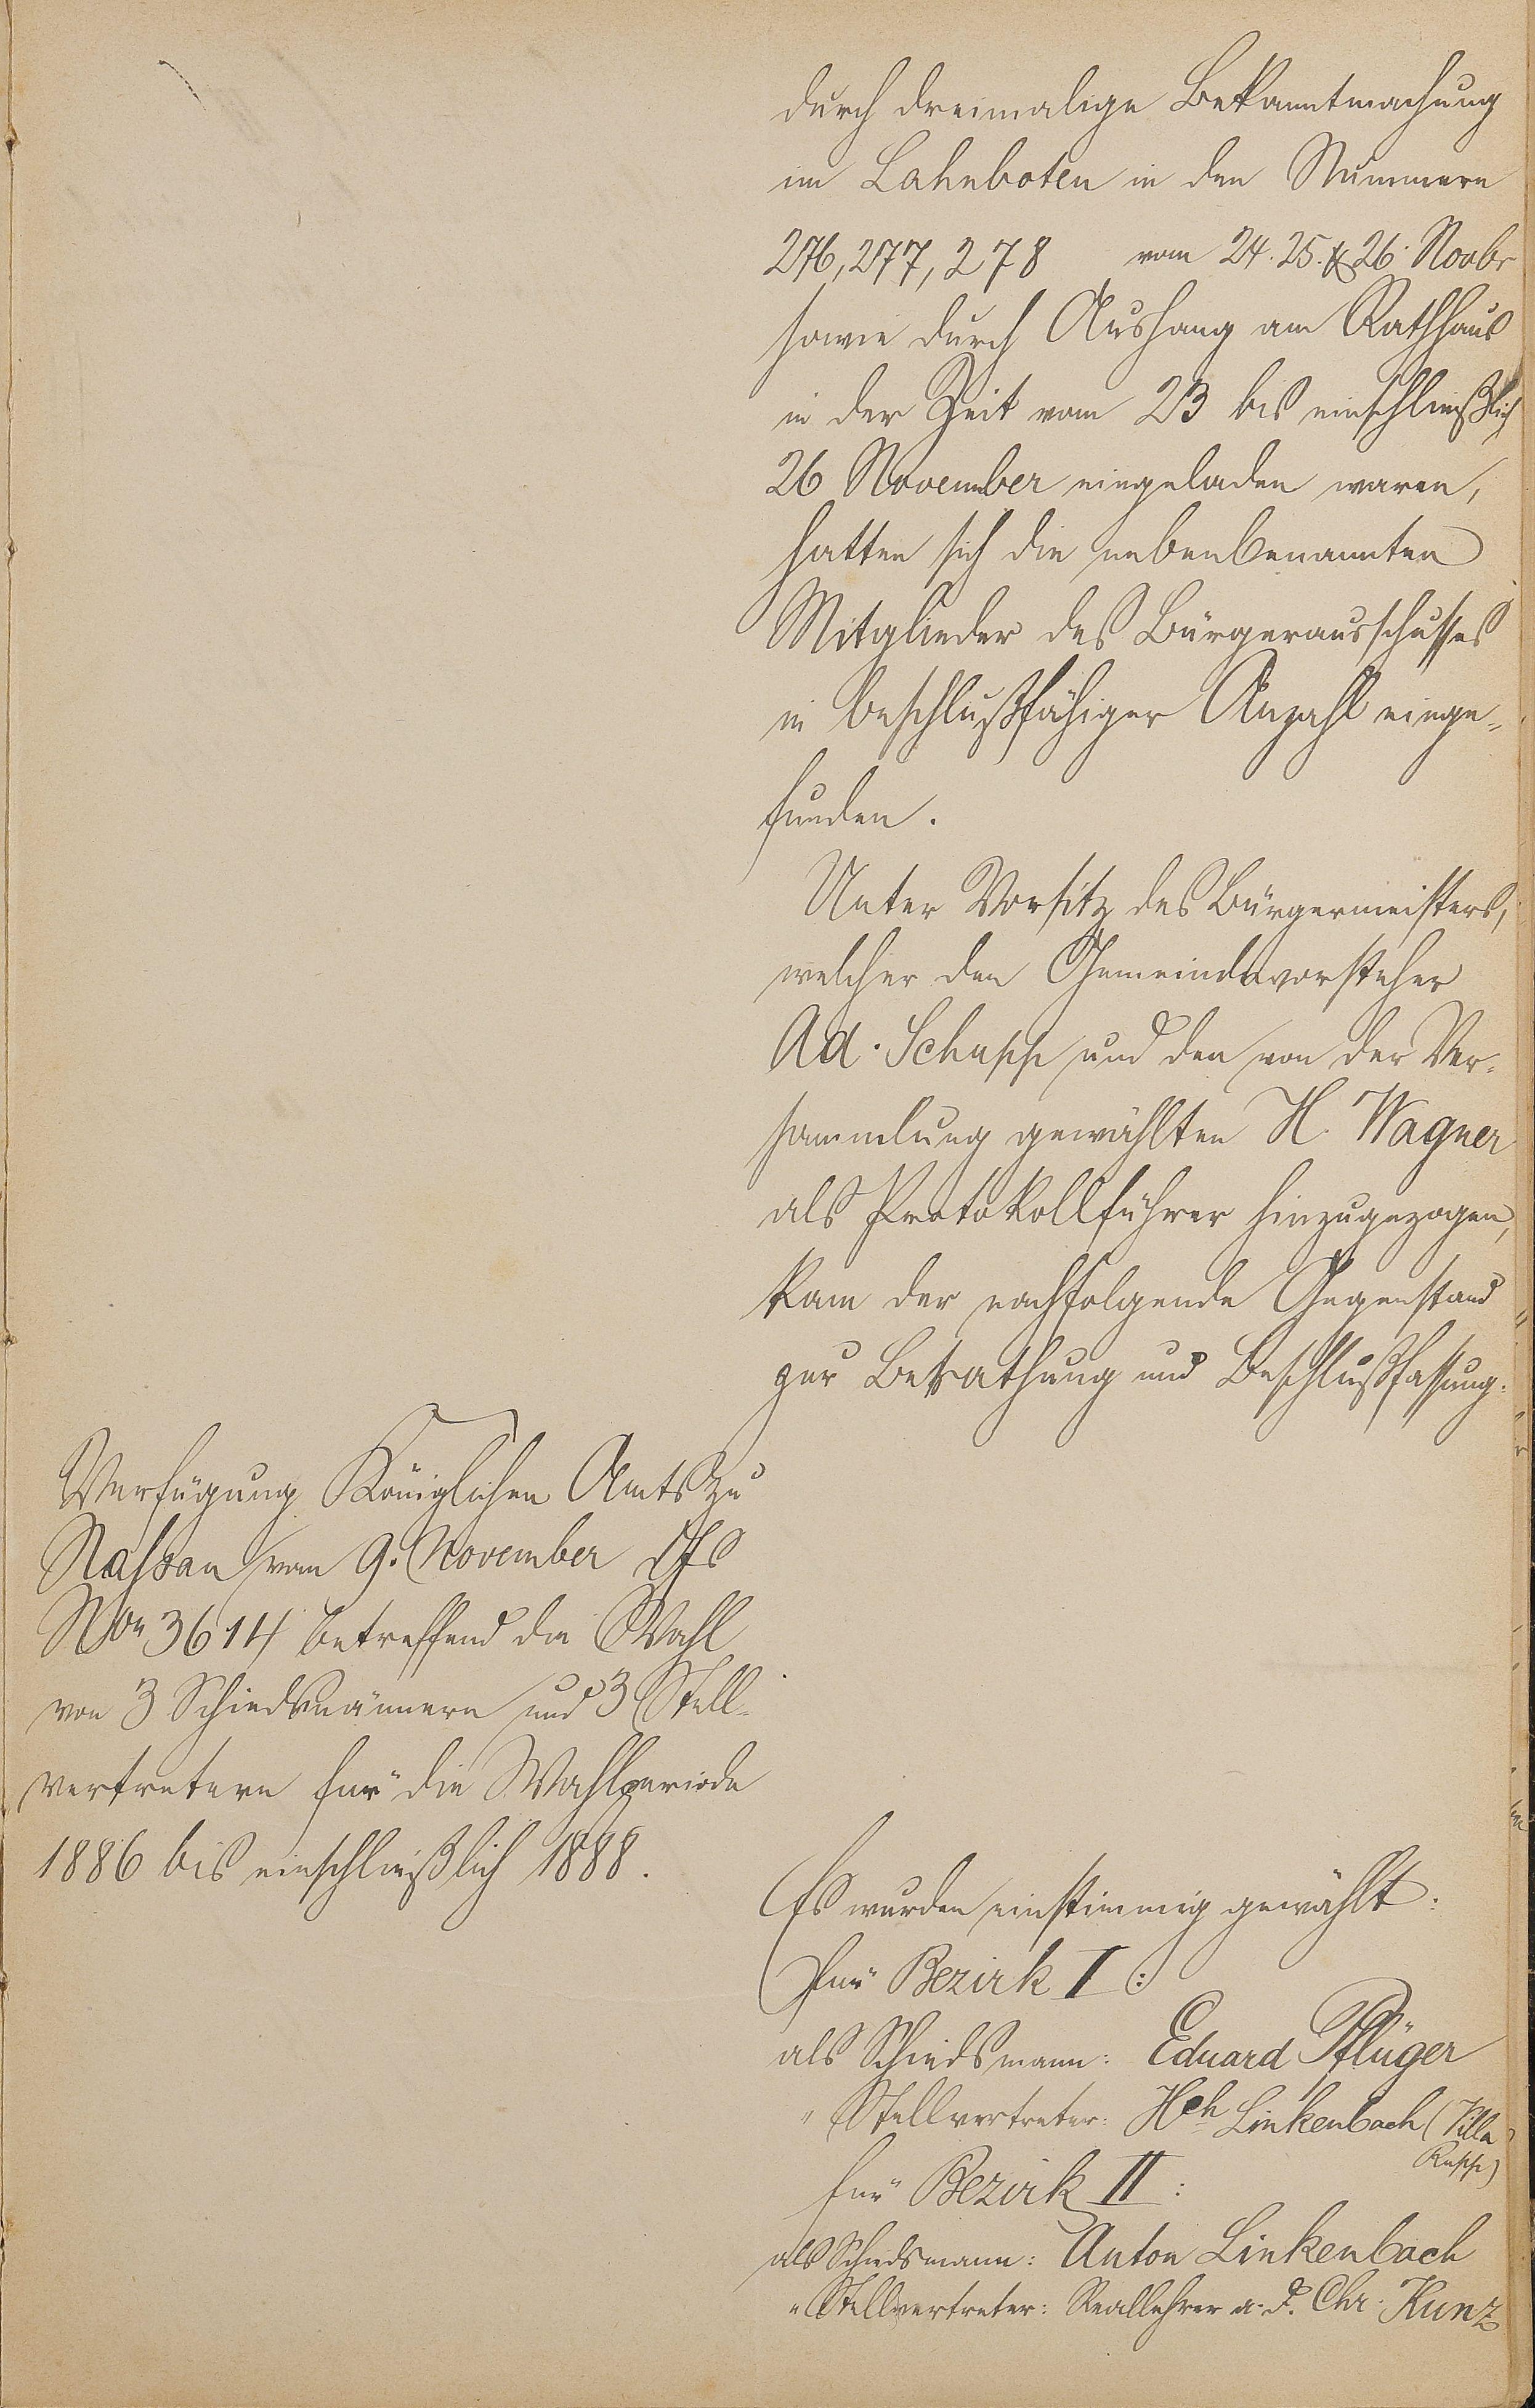 durch dreimalige Bekanntmachung
im Lahnboten in den Nummern
276, 277, 278 vom 24. 25. & 26. Novbr
sowie durch Aushang am Rathhaus
in der Zeit vom 23 bis einschließlich
26 November eingeladen waren,
hatten sich die nebenbenannten
Mitglieder des Bürgerausschusses
in beschlußfähiger Anzahl einge-
funden.
Unter Vorsitz des Bürgermeisters,
welcher den Gemeindevorsteher
Ad. Schupp und den von der Ver-
sammlung gewählten H. Wagner
als Protokollführer hinzugezogen,
kam der nachfolgende Gegenstand
zur Berathung und Beschlußfassung.
Verfügung Königlichen Amts zu
Nassau vom 9. November Js
No 3614 betreffend die Wahl
von 3 Schiedsmännern und 3 Stell-
vertretern für die Wahlperiode
1886 bis einschließlich 1888.
Es wurden einstimmig gewählt:
Für Bezirk I:
als Schiedsmann: Eduard Pflüger
" Stellvertreter: Hch Linkenbach (Villa
Rupp)
für Bezirk II:
als Schiedsmann: Anton Linkenbach
" Stellvertreter: Reallehrer a. D. Chr. Kunz